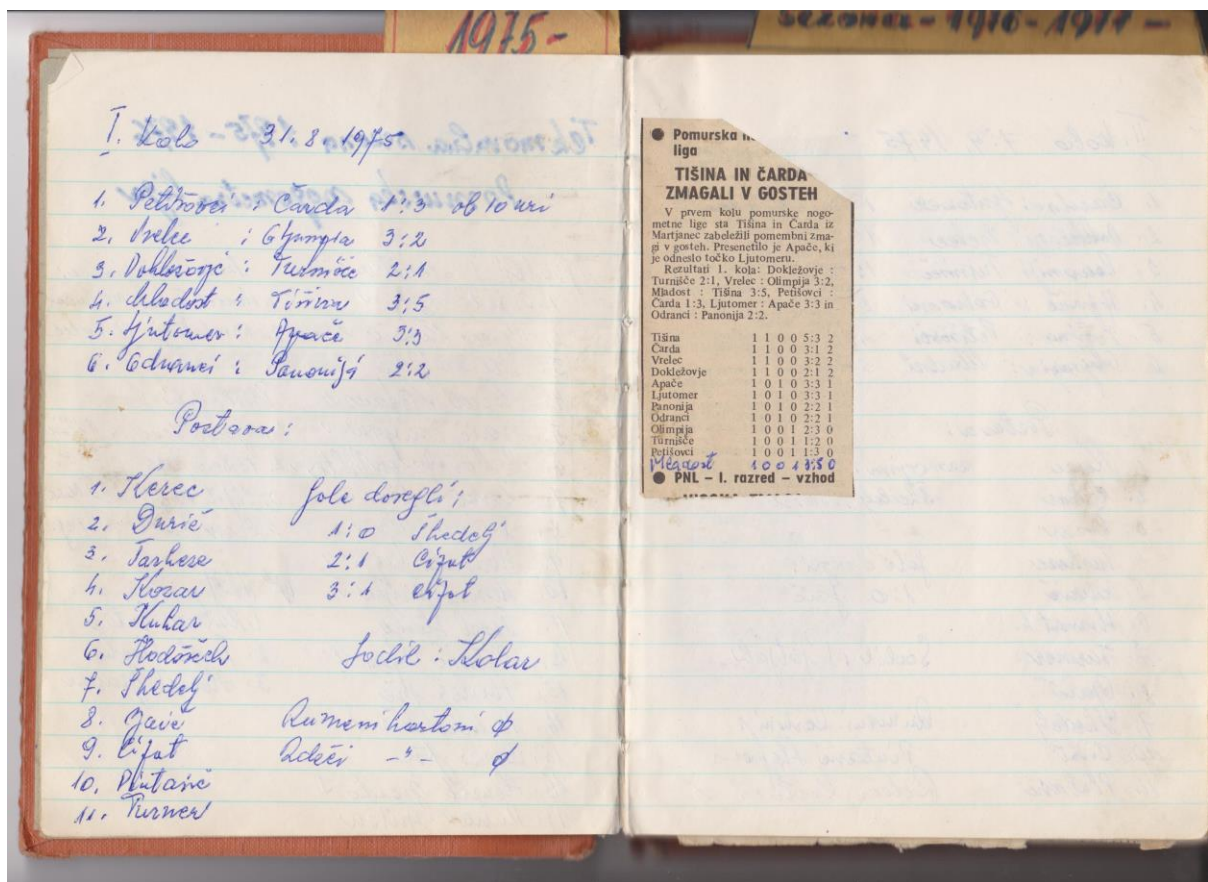 1975-
sezona - 1976 - 1977 -
I. Kolo 31.8 1975
1. Petišovci : Čarda 1:3 ob 10 uri
2. Vrelec : Olympia 3:2
3. Dokležovje : Turnišče 2:1
4. Mladost : Tišina 3:5
5. Ljutomer : Apače 3:3
6. Odranci : Panonija 2:2
Postava :
1. Kerec Gole dosegli :
2. Durič 1:0 Škedelj
3. 2:1 Cifut
4. Kozar 3:1 Cifut
5. Kuhar
6. Hodošček Sodil : Kolar
7. Škedelj
8. Rumeni kartoni ø
9. Cifut Rdeči -"- ø
10. Pintarič
11. Turner
● Pomurska
liga
TIŠINA IN ČARDA
ZMAGALI V GOSTEH
V prvem kolu pomurske nogo-
metne lige sta Tišina in Čarda iz
Martjanec zabeležili pomembni zma-
gi v gosteh. Presenetilo je Apače, ki
je odneslo točko Ljutomeru.
Rezultati 1. kola: Dokležovje :
Turnišče 2:1, Vrelec : Olimpija 3:2,
Mladost : Tišina 3:5, Petišovci :
Čarda 1:3, Ljutomer : Apače 3:3 in
Odranci : Panonija 2:2.
Tišina 1 1 0 0 5:3 2
Čarda 1 1 0 0 3:1 2
Vrelec 1 1 0 0 3:2 2
Dokležovje 1 1 0 0 2:1 2
Apače 1 0 1 0 3:3 1
Ljutomer 1 0 1 0 3:3 1
Panonija 1 0 1 0 2:2 1
Odranci 1 0 1 0 2:2 1
Olimpija 1 0 0 1 2:3 0
Turnišče 1 0 0 1 1:2 0
Petišovci 1 0 0 1 1:3 0
Mladost 1 0 0 1 3:5 0
● PNL – I. razred – vzhod